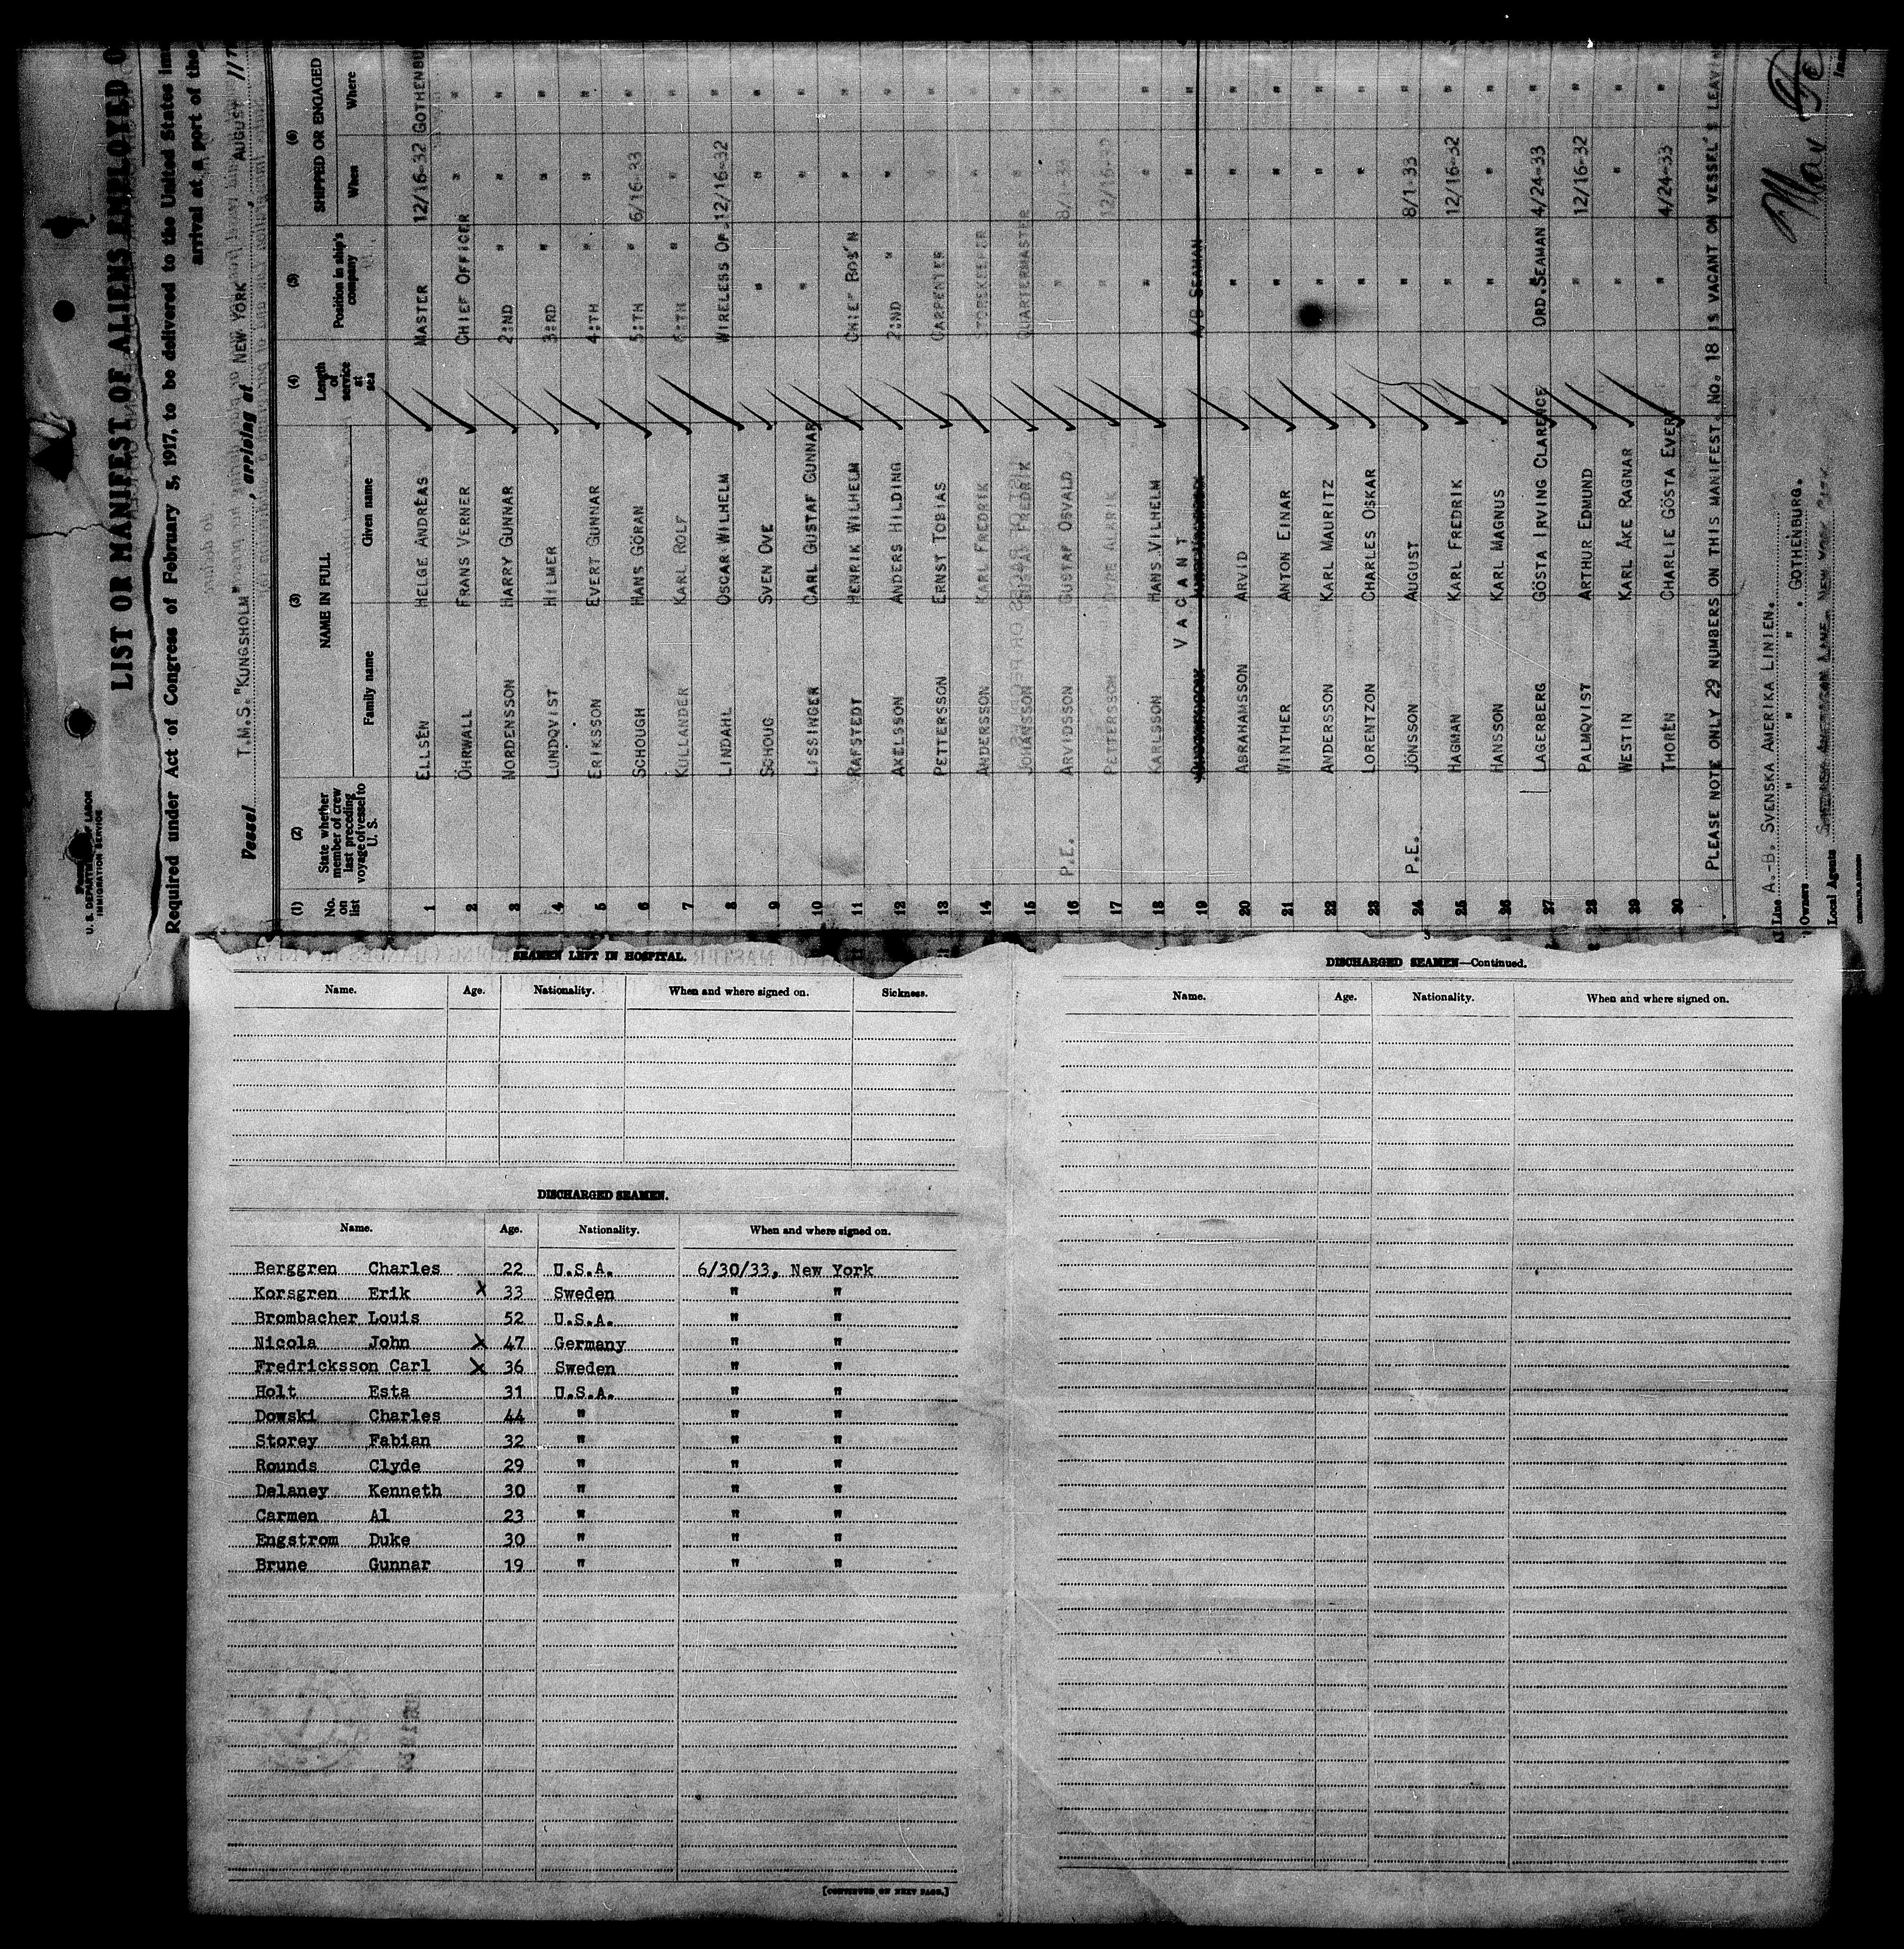 U. S. DEPARTMENT OF LABOR
IMMIGRATION SERVICE
LIST OR MANIFEST OF ALIENS EMPLOYED O
Required under Act of Congress of February 5, 1917, to be delivered to the United States imm
arrival at a port of the
Vessel T.M.S. "KUNGSHOLM", arriving at NEW YORK, AUGUST 11
(1) (2) (3) (4) (5) (6)
No. on list
State whether member of crew last preceding voyage of vessel to U. S.
NAME IN FULL
Family name Given name
Length of service at sea
Position in ship's company
SHIPPED OR ENGAGED
When Where
1 ELLSÉN HELGE ANDRÉAS MASTER 12/16-32 GOTHENBU
2 ÖHRWALL FRANS VERNER CHIEF OFFICER " "
3 NORDENSSON HARRY GUNNAR 2:ND " " "
4 LUNDQVIST HILMER 3:RD " " "
5 ERIKSSON EVERT GUNNAR 4:TH " " "
6 SCHOUGH HANS GÖRAN 5:TH " 6/16-33 "
7 KULLANDER KARL ROLF 6:TH " " "
8 LINDAHL OSCAR WILHELM WIRELESS OF. 12/16-32 "
9 SCHOUG SVEN OVE " " "
10 LISSINGER CARL GUSTAF GUNNAR " " "
11 RAFSTEDT HENRIK WILHELM CHIEF BOS'N " "
12 AXELSSON ANDERS HILDING 2:ND " " "
13 PETTERSSON ERNST TOBIAS CARPENTER " "
14 ANDERSSON KARL FREDRIK STOREKEEPER " "
15 JOHANSSON GUSTAF FREDRIK QUARTERMASTER " "
16 P.E. ARVIDSSON GUSTAF OSVALD " 8/1-33 "
17 PETTERSSON ALARIK " 12/16-32 "
18 KARLSSON HANS VILHELM " " "
19 VACANT A/B SEAMAN " "
20 ABRAHAMSSON ARVID " " "
21 WINTHER ANTON EINAR " "
22 ANDERSSON KARL MAURITZ " " "
23 LORENTZON CHARLES OSKAR " " "
24 P.E. JÖNSSON AUGUST " 8/1-33 "
25 HAGMAN KARL FREDRIK " 12/16-32 "
26 HANSSON KARL MAGNUS " " "
27 LAGERBERG GÖSTA IRVING CLARENCE ORD.SEAMAN 4/24-33 "
28 PALMQVIST ARTHUR EDMUND " 12/16-32 "
29 WESTIN KARL ÅKE RAGNAR " " "
30 THORÉN CHARLIE GÖSTA EVERT " 4/24-33 "
PLEASE NOTE ONLY 29 NUMBERS ON THIS MANIFEST. NO. 18 IS VACANT ON VESSEL'S LEAVIN
Line A.-B. SVENSKA AMERIKA LINIEN.
Owners " " " . GOTHENBURG.
Local Agents SWEDISH AMERICAN LINE. NEW YORK CITY
SEAMEN LEFT IN HOSPITAL.
Name. Age. Nationality. When and where signed on. Sickness.
DISCHARGED SEAMEN.
Name. Age. Nationality. When and where signed on.
Berggren Charles 22 U.S.A. 6/30/33, New York
Korsgren Erik X 33 Sweden " "
Brombacher Louis 52 U.S.A. " "
Nicola John X 47 Germany " "
Fredricksson Carl X 36 Sweden " "
Holt Esta 31 U.S.A. " "
Dowski Charles 44 " " "
Storey Fabian 32 " " "
Rounds Clyde 29 " " "
Delaney Kenneth 30 " " "
Carmen Al 23 " " "
Engstrom Duke 30 " " "
Brune Gunnar 19 " " "
[CONTINUED ON NEXT PAGE.]
DISCHARGED SEAMEN—Continued.
Name. Age. Nationality. When and where signed on.